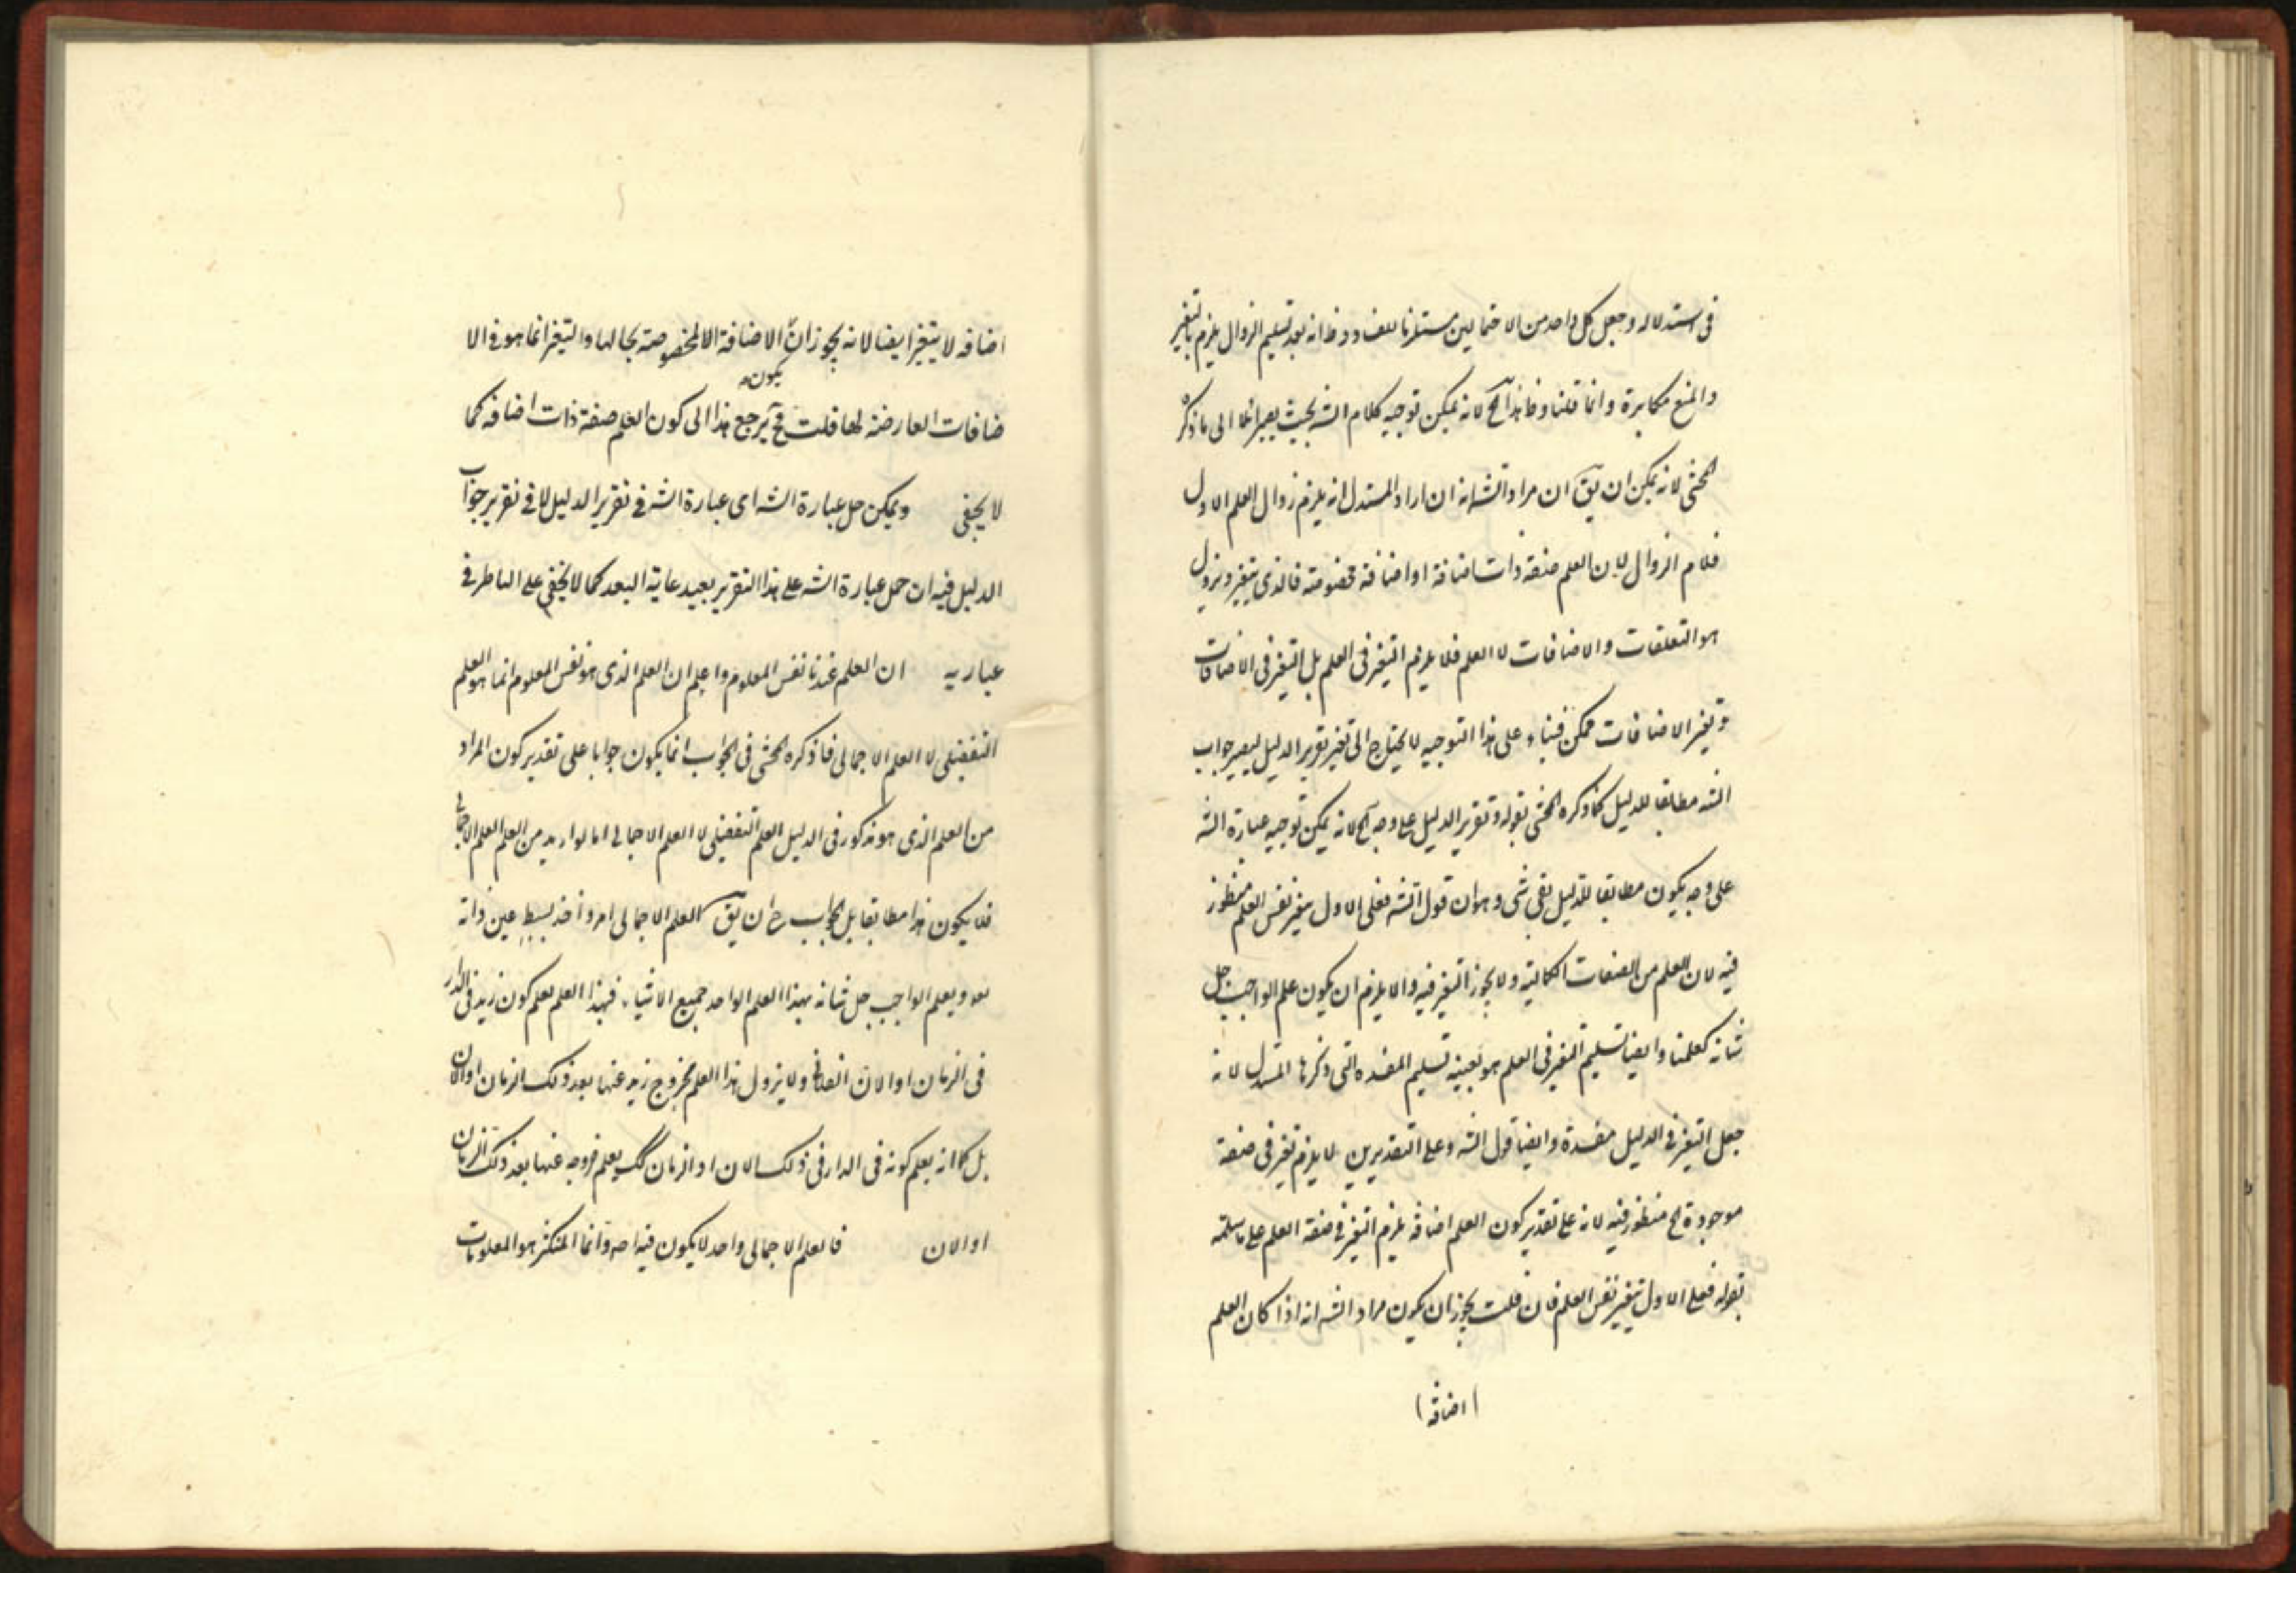 فى استدلاله وجعل كل واحد من الاحتمالين مستلزما للفساد وظ انه بعد تسليم الزوال يلزم التغير
والمنع مكابرة وانما قلنا وظ هذا الخ لانه يمكن توجيه كلام الشه بحيث يصير الى ما ذكره
المحشى لانه يمكن ان يق ان مراد الشه انه ان اراد المستدل انه يلزم زوال العلم الاول
فلا م الزوال لان العلم صفة ذات اضافة او اضافة مخصوصة فالذى يتغير ويزول
هو التعلقات والاضافات لا العلم فلا يلزم التغير فى العلم بل التغير فى الاضافات
وتغير الاضافات ممكن فبناء على هذا التوجيه لا يحتاج الى تغير تقرير الدليل ليصير جواب
الشه مطابقا للدليل كما ذكره المحشى بقوله وتقرير الدليل على وجه الخ لانه يمكن توجيه عبارة الشه
على وجه يكون مطابقا للدليل بقى شى وهو ان قول الشه فعلى الاول يتغير نفس العلم منظور
فيه لان العلم من الصفات الكمالية ولا يجوز التغير فيه والا يلزم ان يكون علم الواجب جل
شانه كعلمنا وايضا تسليم التغير فى العلم هو بعينه تسليم المفسدة التى ذكرها المستدل لانه
جعل التغير فى الدليل مفسدة وايضا قول الشه وعلى التقديرين لا يلزم تغير فى صفة
موجودة الخ منظور فيه لانه على تقدير كون العلم اضافة يلزم التغير فى صفة العلم على ما سلمه
بقوله فعلى الاول يتغير نفس العلم فان قلت يجوز ان يكون مراد الشه انه اذا كان العلم
(اضافة)
اضافه لا يتغير ايضا لانه يجوز ان الاضافة المخصوصة بحالها والتغير انما هو فى الا
يكون
ضافات العارضة لها قلت فح يرجع هذا الى كون العلم صفة ذات اضافه كما
لا يخفى ويمكن حل عبارة الشه اى عبارة الشه فى تقرير الدليل لا فى تقرير جواب
الدليل فيه ان حمل عبارة الشه على هذا التقرير بعيد غاية البعد كما لا يخفى على الناظر فى
عباريه ان العلم عندنا نفس المعلوم واعلم ان العلم الذى هو نفس المعلوم انما هو العلم
التفضيلى لا العلم الاجمالى فما ذكره المحشى فى الجواب انما يكون جوابا على تقدير كون المراد
من العلم الذى هو مذكور فى الدليل العلم التفضيلى لا العلم الاجمالى اما لو اريد من العلم العلم الاجمالى
فلا يكون هذا مطابقا بل الجواب ح ان يق العلم الاجمالى امر واحد بسيط عين ذاته
بعد ويعلم الواجب جل شانه بهذا العلم الواحد جميع الاشياء فبهذا العلم يعلم كون زيد فى الدار
فى الزمان او الان الفلانى ولا يزول هذا العلم بخروج زيد عنها بعد ذلك الزمان او الان
بل كما انه يعلم كونه فى الدار فى ذلك الان او الزمان كك يعلم خروجه عنها بعد ذلك الزمان
او الان فالعلم الاجمالى واحد لا يكون فيه وانما المتكثر هو المعلومات